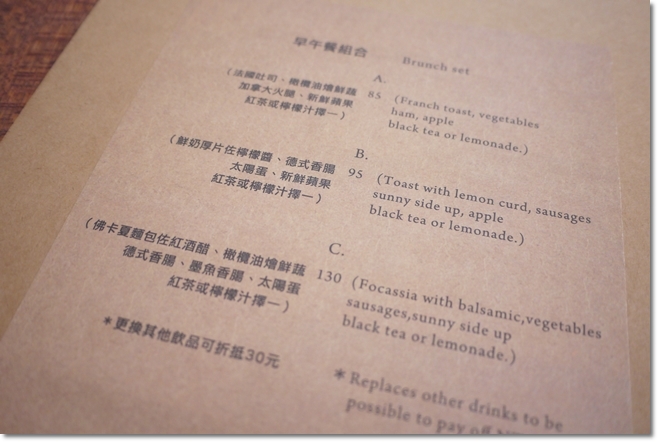 早午餐組合 Brunch set
A.
(法國吐司、橄欖油燴鮮蔬
加拿大火腿、新鮮蘋果
紅茶或檸檬汁擇一)
85 (Franch toast, vegetables
ham, apple
black tea or lemonade.)
B.
(鮮奶厚片佐檸檬醬、德式香腸
太陽蛋、新鮮蘋果
紅茶或檸檬汁擇一)
95 (Toast with lemon curd, sausages
sunny side up, apple
black tea or lemonade.)
C.
(佛卡夏麵包佐紅酒醋、橄欖油燴鮮蔬
德式香腸、墨魚香腸、太陽蛋
紅茶或檸檬汁擇一)
130 (Focassia with balsamic,vegetables
sausages,sunny side up
black tea or lemonade.)
*更換其他飲品可折抵30元
*Replaces other drinks to be
possible to pay off